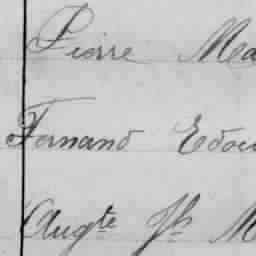 Pierre Ma
Fernand Edou
Augte Jh M